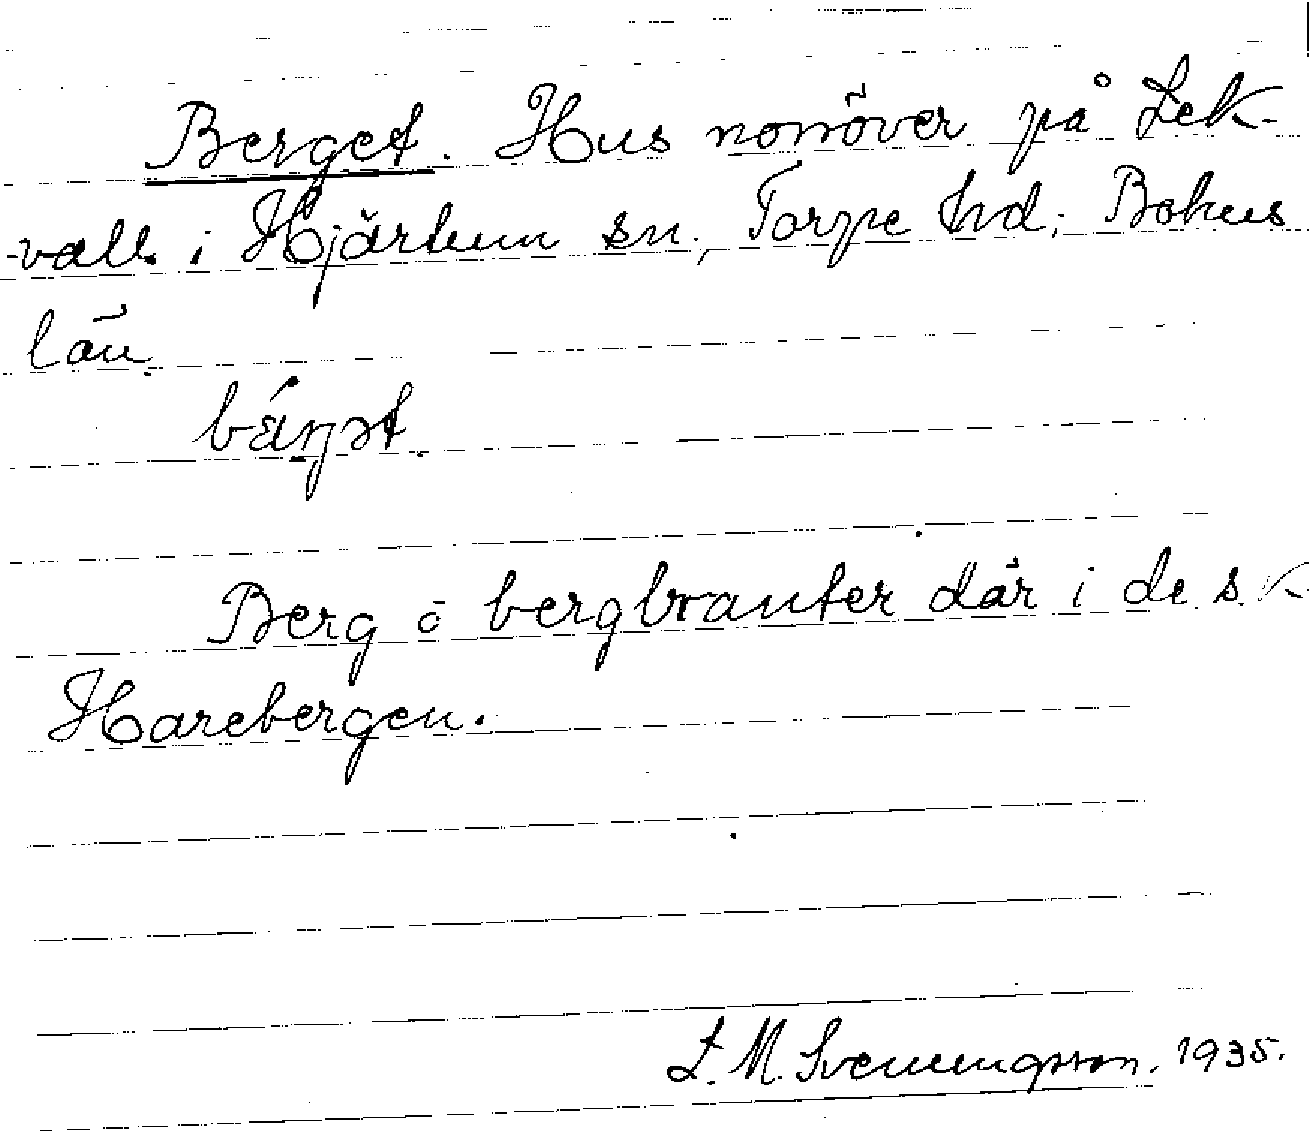 Berget. Hus norröver på Lek-
vall i Hjärtum sn., Torpe hd; Bohus
län.
bä́rjət.
Berg o bergbranter där i de s. k.
Harebergen.
L. M. Svenungsson. 1935.